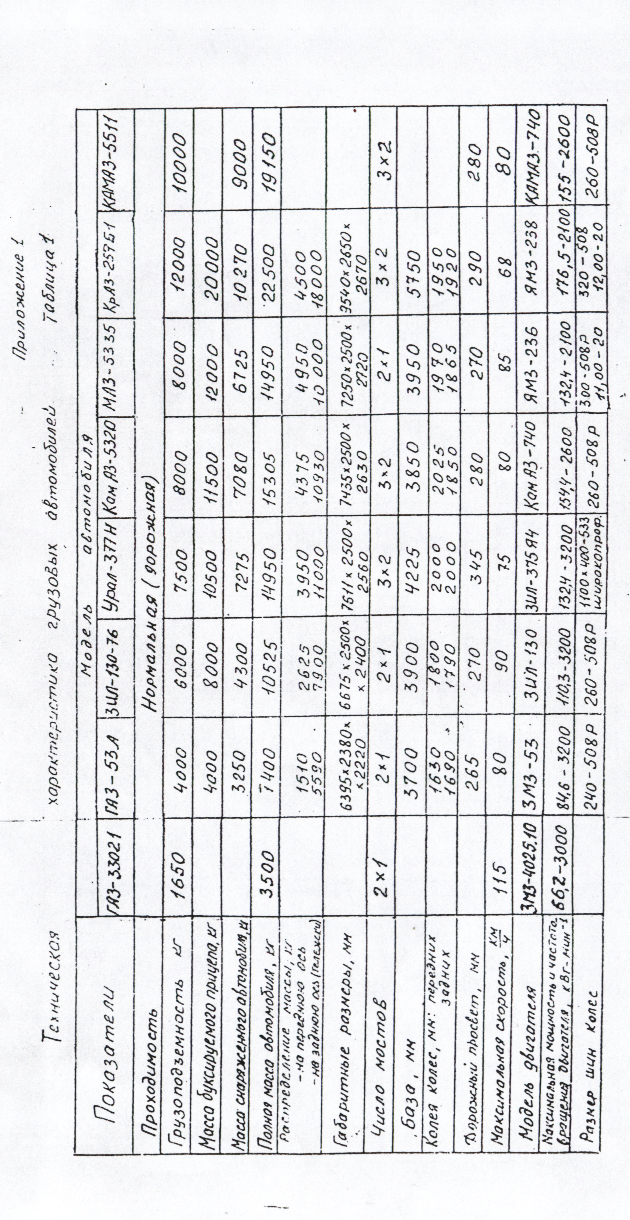 Приложение 1
Техническая характеристика грузовых автомобилей Таблица 1
Показатели Модель автомобиля
ГАЗ-33021 ГАЗ-53А ЗИЛ-130-76 Урал-377Н КамАЗ-5320 МАЗ-5335 КрАЗ-257Б1 КАМАЗ-5511
Проходимость Нормальная (дорожная)
Грузоподъемность кг 1650 4000 6000 7500 8000 8000 12000 10000
Масса буксируемого прицепа, кг 4000 8000 10500 11500 12000 20000
Масса снаряженного автомобиля, кг 3250 4300 7275 7080 6725 10270 9000
Полная масса автомобиля, кг 3500 7400 10525 14950 15305 14950 22500 19150
Распределение массы, кг
- на переднюю ось 1510 2625 3950 4375 4950 4500
- на заднюю ось (тележки) 5590 7900 11000 10930 10000 18000
Габаритные размеры, мм 6395х2380х 6675х2500х 7611х2500х 7435х2500х 7250х2500х 9540х2650х
х2220 х2400 2560 2630 2720 2670
Число мостов 2х1 2х1 2х1 3х2 3х2 2х1 3х2 3х2
База, мм 3700 3900 4225 3850 3950 5750
Колея колес, мм: передних 1630 1800 2000 2025 1970 1950
задних 1690 1790 2000 1850 1865 1920
Дорожный просвет, мм 265 270 345 280 270 290 280
Максимальная скорость, км/ч 115 80 90 75 80 85 68 80
Модель двигателя ЗМЗ-4025,10 ЗМЗ-53 ЗИЛ-130 ЗИЛ-375Я4 КамАЗ-740 ЯМЗ-236 ЯМЗ-238 КАМАЗ-740
Максимальная мощность и частота
вращения двигателя, кВт-мин⁻¹ 66,2-3000 84,6-3200 110,3-3200 132,4-3200 154,4-2600 132,4-2100 176,5-2100 155-2600
Размер шин колес 240-508Р 260-508Р 1100х400-533 260-508Р 300-508Р 320-508 260-508Р
широкопроф. 11,00-20 12,00-20